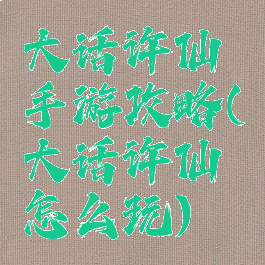 大话许仙
手游攻略(
大话许仙
怎么玩)